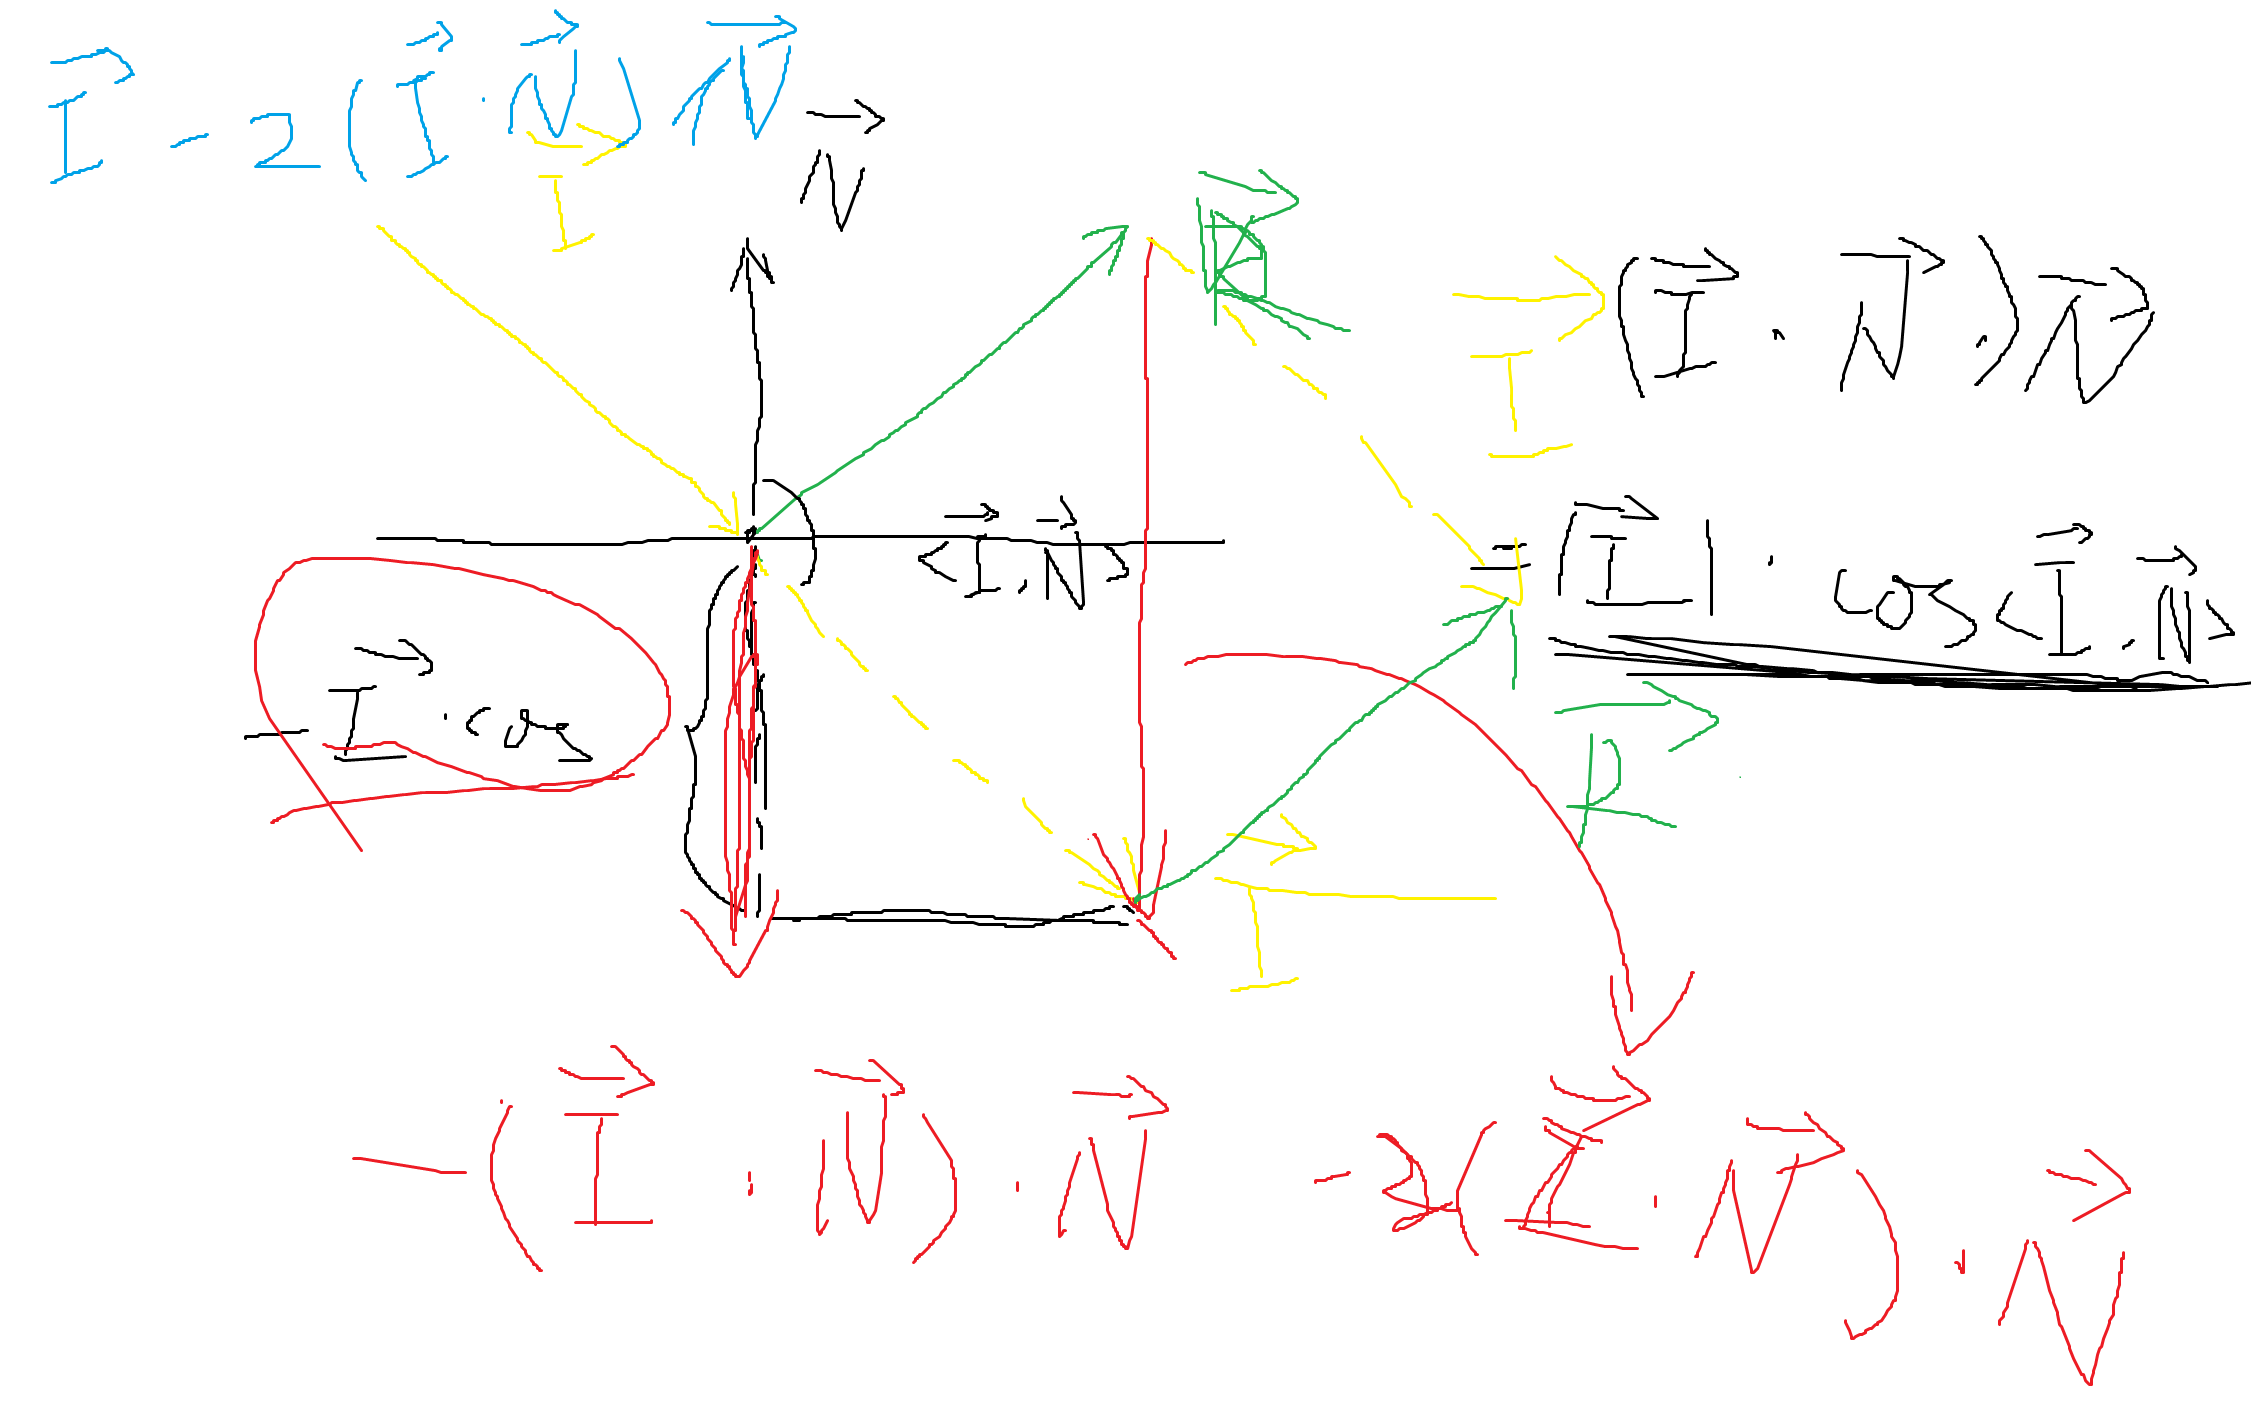 I⃗ - 2(I⃗ · N⃗) N⃗
I⃗
N⃗
R⃗
I⃗
(I⃗ · N⃗ ·) N⃗
<I⃗ . N⃗>
= |I⃗| · cos<I⃗ . N⃗>
- I⃗ · cos
R⃗
I⃗
-(I⃗ · N⃗) · N⃗
-2(I⃗ · N⃗) · N⃗